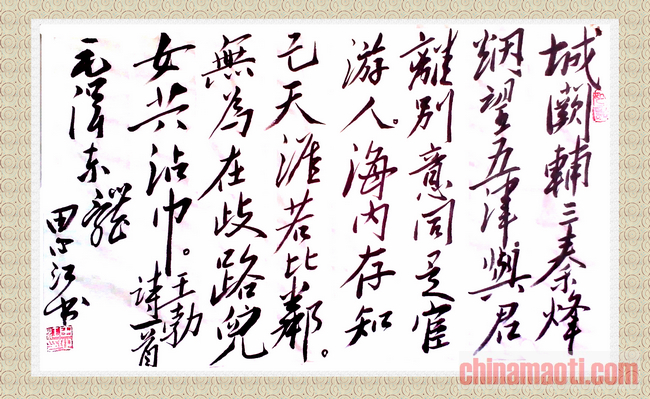 城闕輔三秦烽
烟望五津與君
離別意同是宦
游人。海内存知
己天涯若比鄰。
無為在歧路兒
女共沾巾。王勃
詩一首
毛澤东體
江书
chinamaoti.com